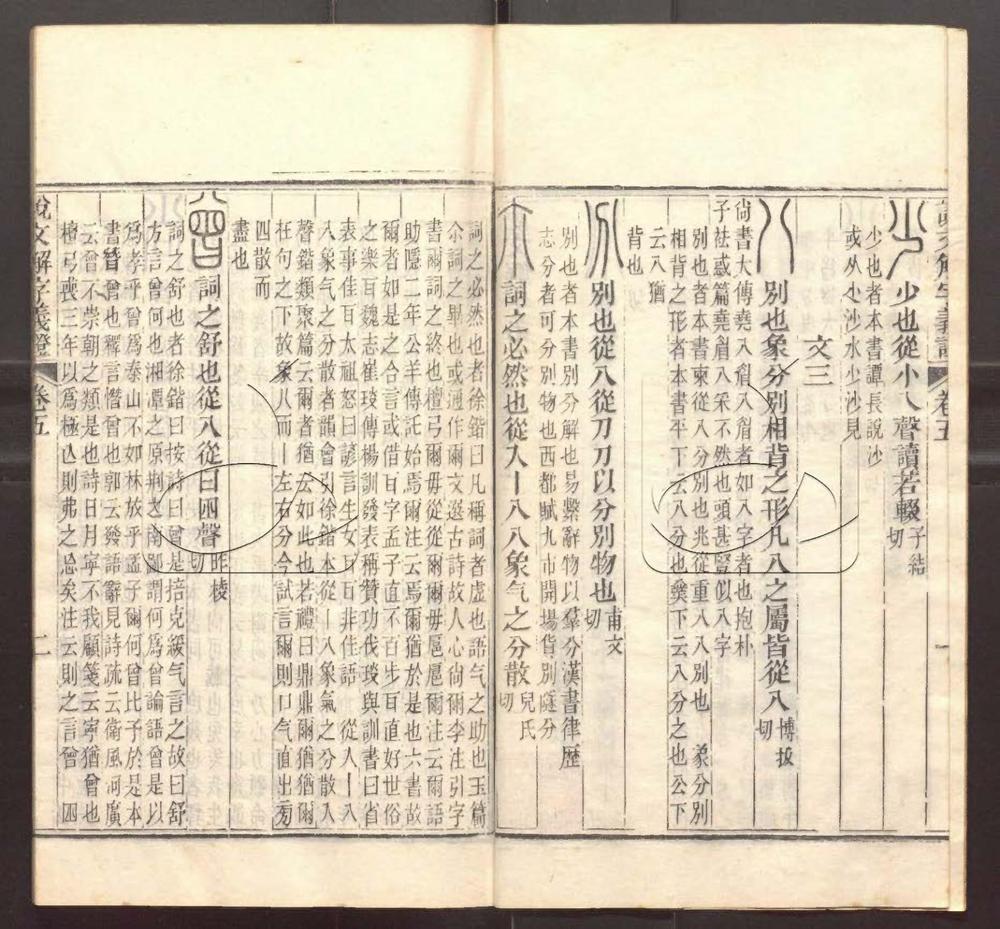 說文解字義證 卷五 一
少也從小乀聲讀若輟子結切
少也者本書譚長說沙
或從尐沙水少沙見
文三
八 別也象分別相背之形凡八之屬皆從八博拔切
尚書大傳堯八眉八眉者如八字者也抱朴
子祛惑篇堯眉八采不然也頭甚豎似八字
別也者本書柬從八分別也㒸從重八八別也 象分別
相背之形者本書平下云八分也㸣下云八分之也公下
云八猶
背也
別也從八從刀刀以分別物也甫文切
別也者本書別分解也易繫辭物以羣分漢書律歷
志分者可分別物也西都賦九市開場貨別隧分
詞之必然也從入丨八八象气之分散兒氏切
詞之必然也者徐鍇曰凡稱詞者虛也語气之助也玉篇
尒詞之畢也或通作爾文選古詩故人心尙爾李注引字
書爾詞之終也檀弓爾毋從從爾爾毋扈扈爾注云爾語
助隱二年公羊傳託始焉爾注云焉爾猶於是也六書故
爾者如是之合言或借用耳字孟子直不百步耳直好世俗
之樂耳魏志崔琰傳楊訓發表稱贊功伐琰與訓書曰省
表事佳耳太祖怒曰諺言生女耳耳非佳語 從入丨八
八象气之分散者韻會引徐鍇本從丨八象氣之分散入
聲鍇類聚篇云爾者猶云如此也若禮曰鼎鼎爾猶猶爾
在句之下故象八而丨左右分今試言爾則口气直出而㫄
四散而
盡也
曾 詞之舒也從八從曰𡆧聲昨稜切
詞之舒也者徐鍇曰按詩曰曾是掊克緩气言之故曰舒
方言曾何也湘潭之原荆之南鄙謂何爲曾論語曾是以
爲孝乎曾爲泰山不如林放乎孟子爾何曾比子於是本
書朁曾也釋言憯曾也郭云發語辭見詩疏云衛風河廣
云曾不崇朝之類是也詩日月寧不我顧箋云寧猶曾也
檀弓喪三年以爲極亡則弗之忘矣注云則之言曾 𡆧
說文解字義證 卷五 二